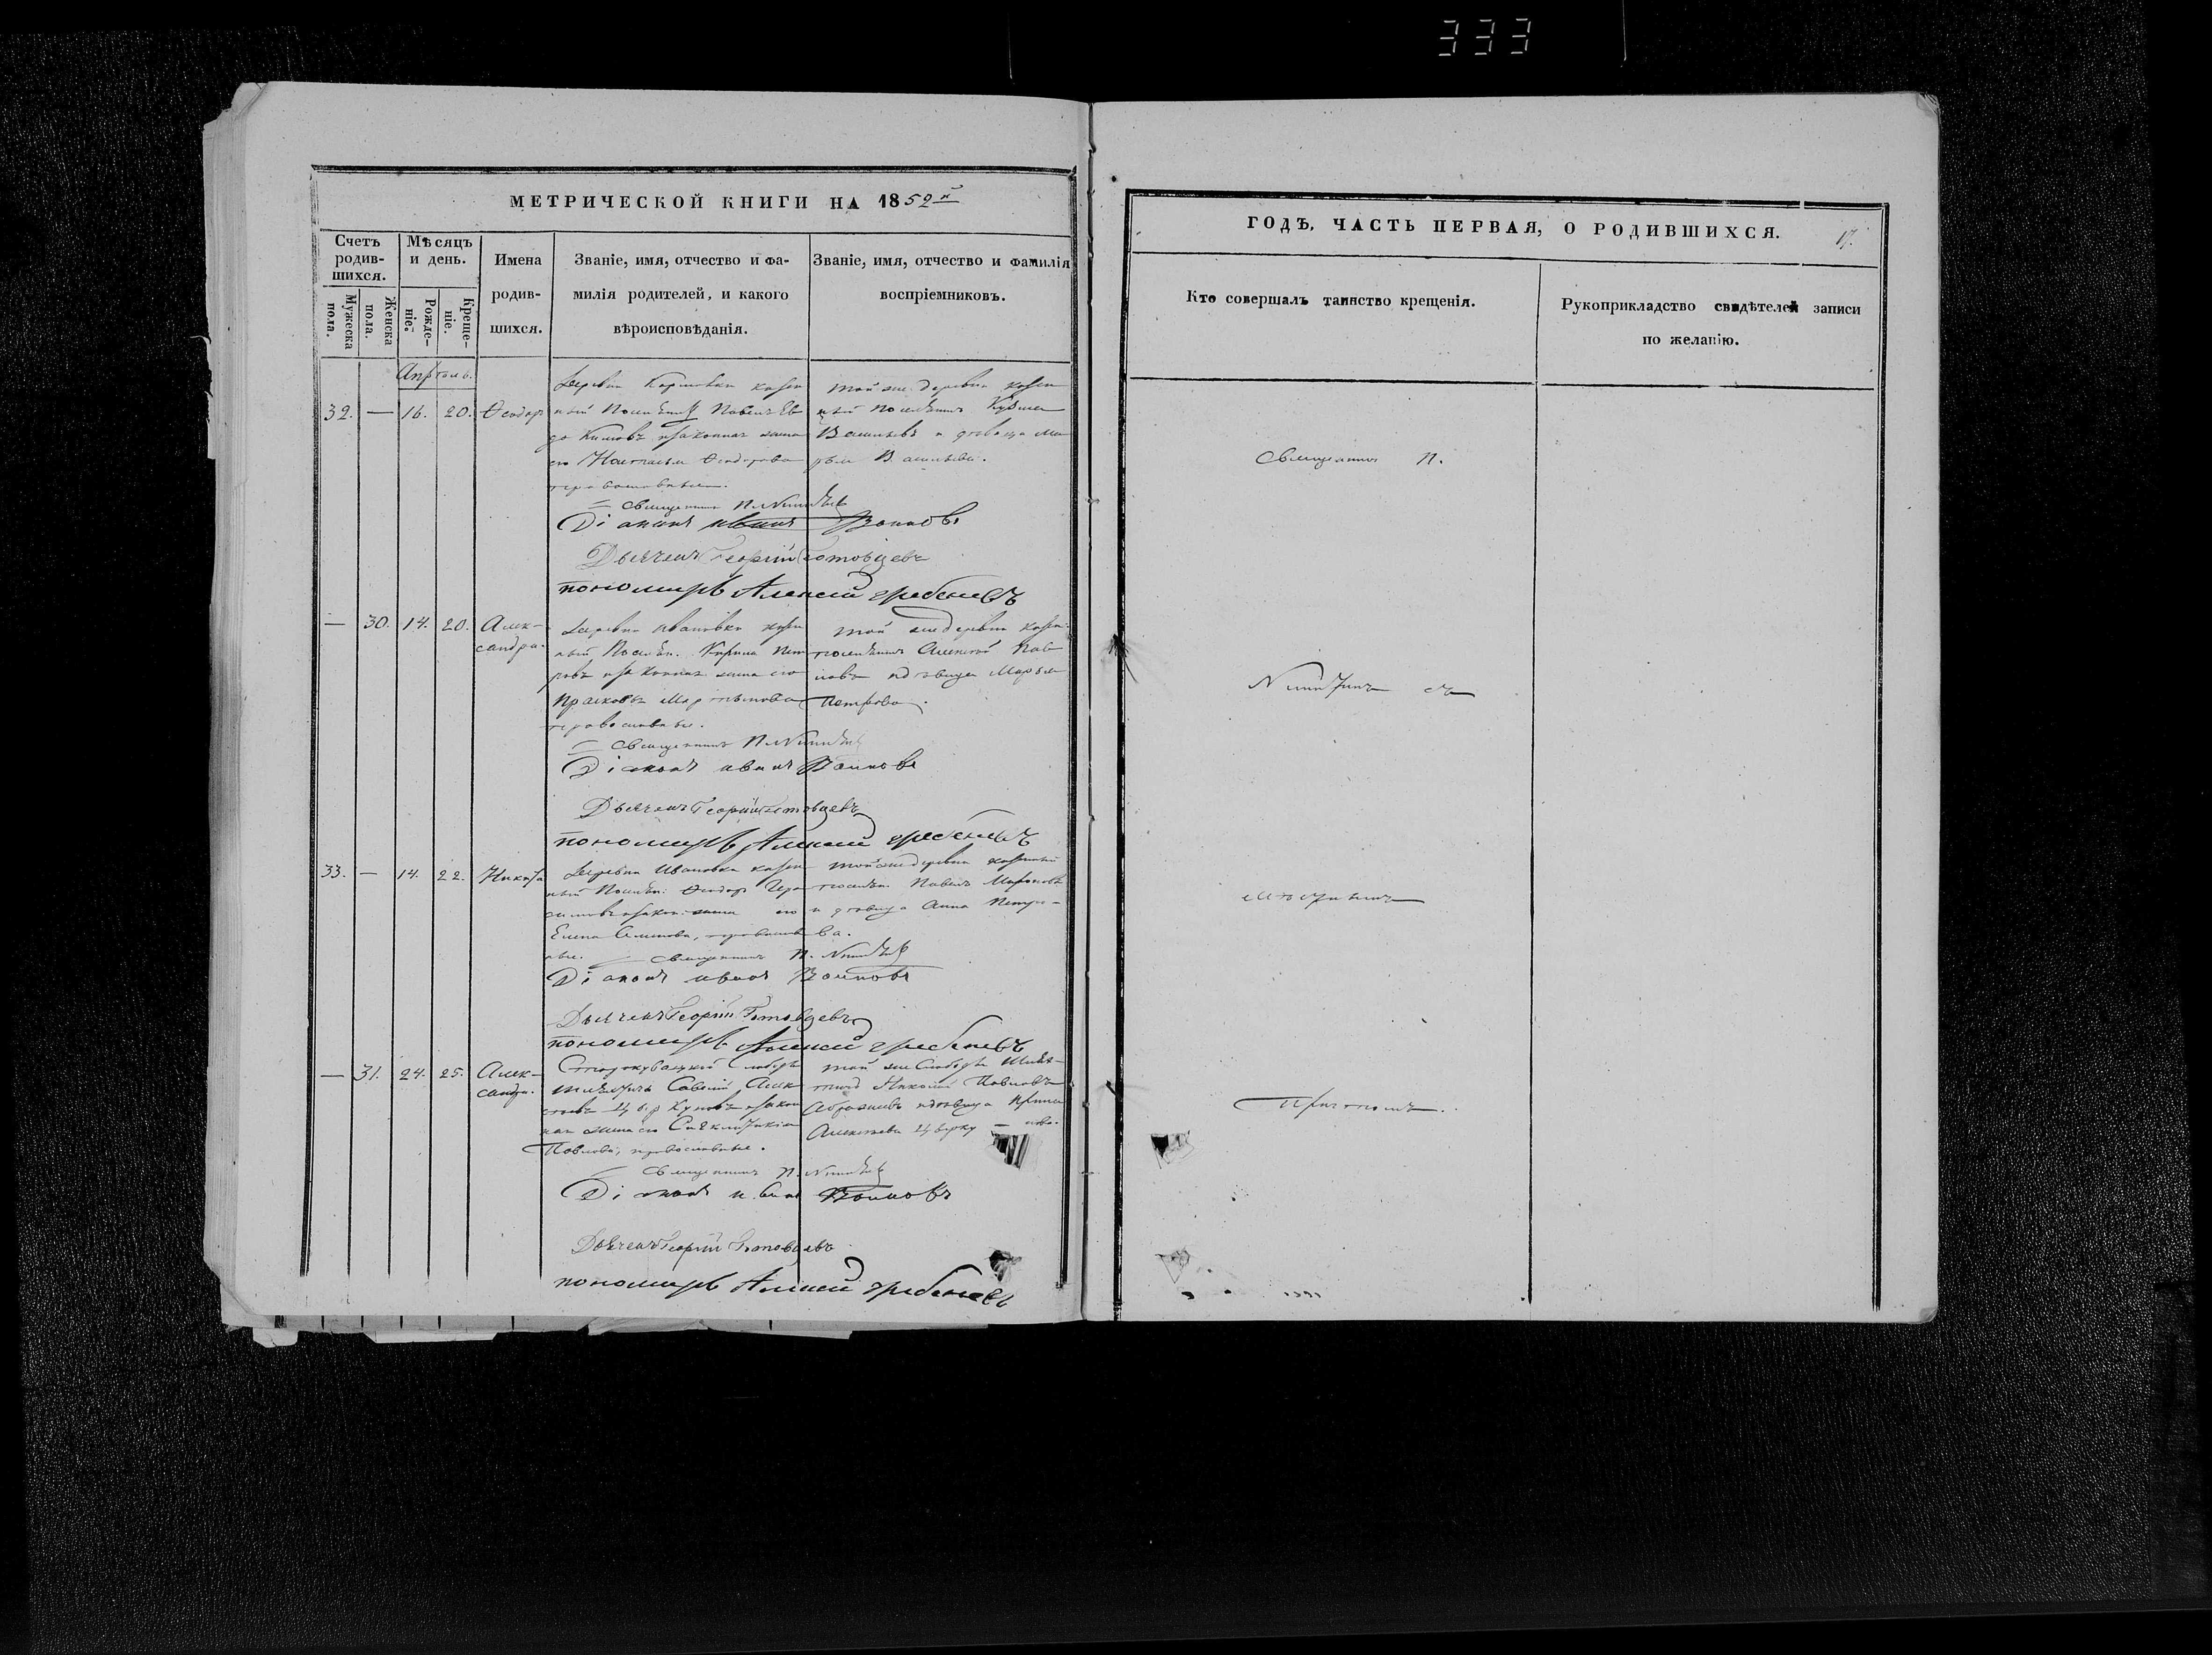 333
МЕТРИЧЕСКОЙ КНИГИ НА 1852й
Счетъ родив-шихся.
Мужеска пола.
Женска пола.
Мѣсяцъ и день.
Рожде-ніе.
Креще-ніе.
Имена родив-шихся.
Званіе, имя, отчество и фа-
милія родителей, и какого
вѣроисповѣданія.
Званіе, имя, отчество и фамилія
воспріемниковъ.
Апрѣль.
32. — 16. 20. Ѳеодоръ
Деревни казен
ный Павелъ Ев
докимовъ законная жена
его Наталья Ѳеодорова
православные.
той же деревни казен
ный поселянинъ Кузма
Васильевъ и дѣвица Ма
рья Васильева.
Священникъ П. Никитинъ
Діаконъ Иванъ Волковъ
Дьячекъ Георгій Готовцевъ
пономарь Алексей гребеневъ
— 30. 14. 20. Алек-
сандра.
Деревни Ивановки казен
ный Кирила Пет
ровъ законная жена его
Прасковья
православные.
той же деревни казен
поселянинъ Алексей Пав
ловъ и дѣвица Марья
Петрова.
Священникъ П. Никитинъ
Діаконъ иванъ Волковъ
Дьячекъ Георгій Готовцевъ
пономарь Алексей гребеневъ
33. — 14. 22. Никита
Деревни Ивановки казен
ный Ѳеодоръ Гера
симовъ закон. жена его
Елена православ
ные.
той же деревни казенный
Павелъ Мироновъ
и дѣвица Анна Петро-
ва.
Священникъ П. Никитинъ
Діаконъ иванъ Волковъ
Дьячекъ Георгій Готовцевъ
пономарь Алексей гребеневъ
— 31. 24. 25. Алек-
сандра.
Слободы
Савелій Алек
закон
ная жена его Синклитикія
Павлова, православные.
той же Слободы
Николай Павловъ
и дѣвица Ирина
Алексѣева
Священникъ П. Никитинъ
Діаконъ иванъ Волковъ
Дьячекъ Георгій Готовцевъ
пономарь Алексей гребеневъ
ГОДЪ, ЧАСТЬ ПЕРВАЯ, О РОДИВШИХСЯ.
17.
Кто совершалъ таинство крещенія.
Рукоприкладство свидѣтелей записи
по желанію.
Священникъ П.
Никитинъ съ
Причтомъ.